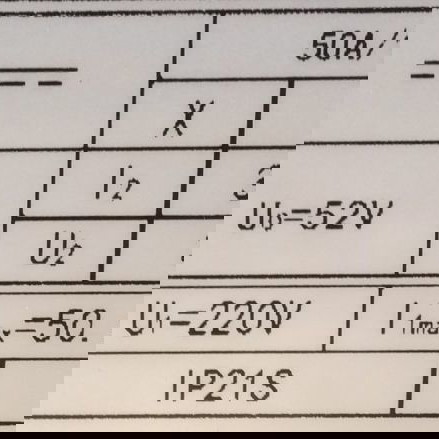 50A/
X
I₂
U₀=52V
U₂
U₁=220V I₁max=50.
IP21S